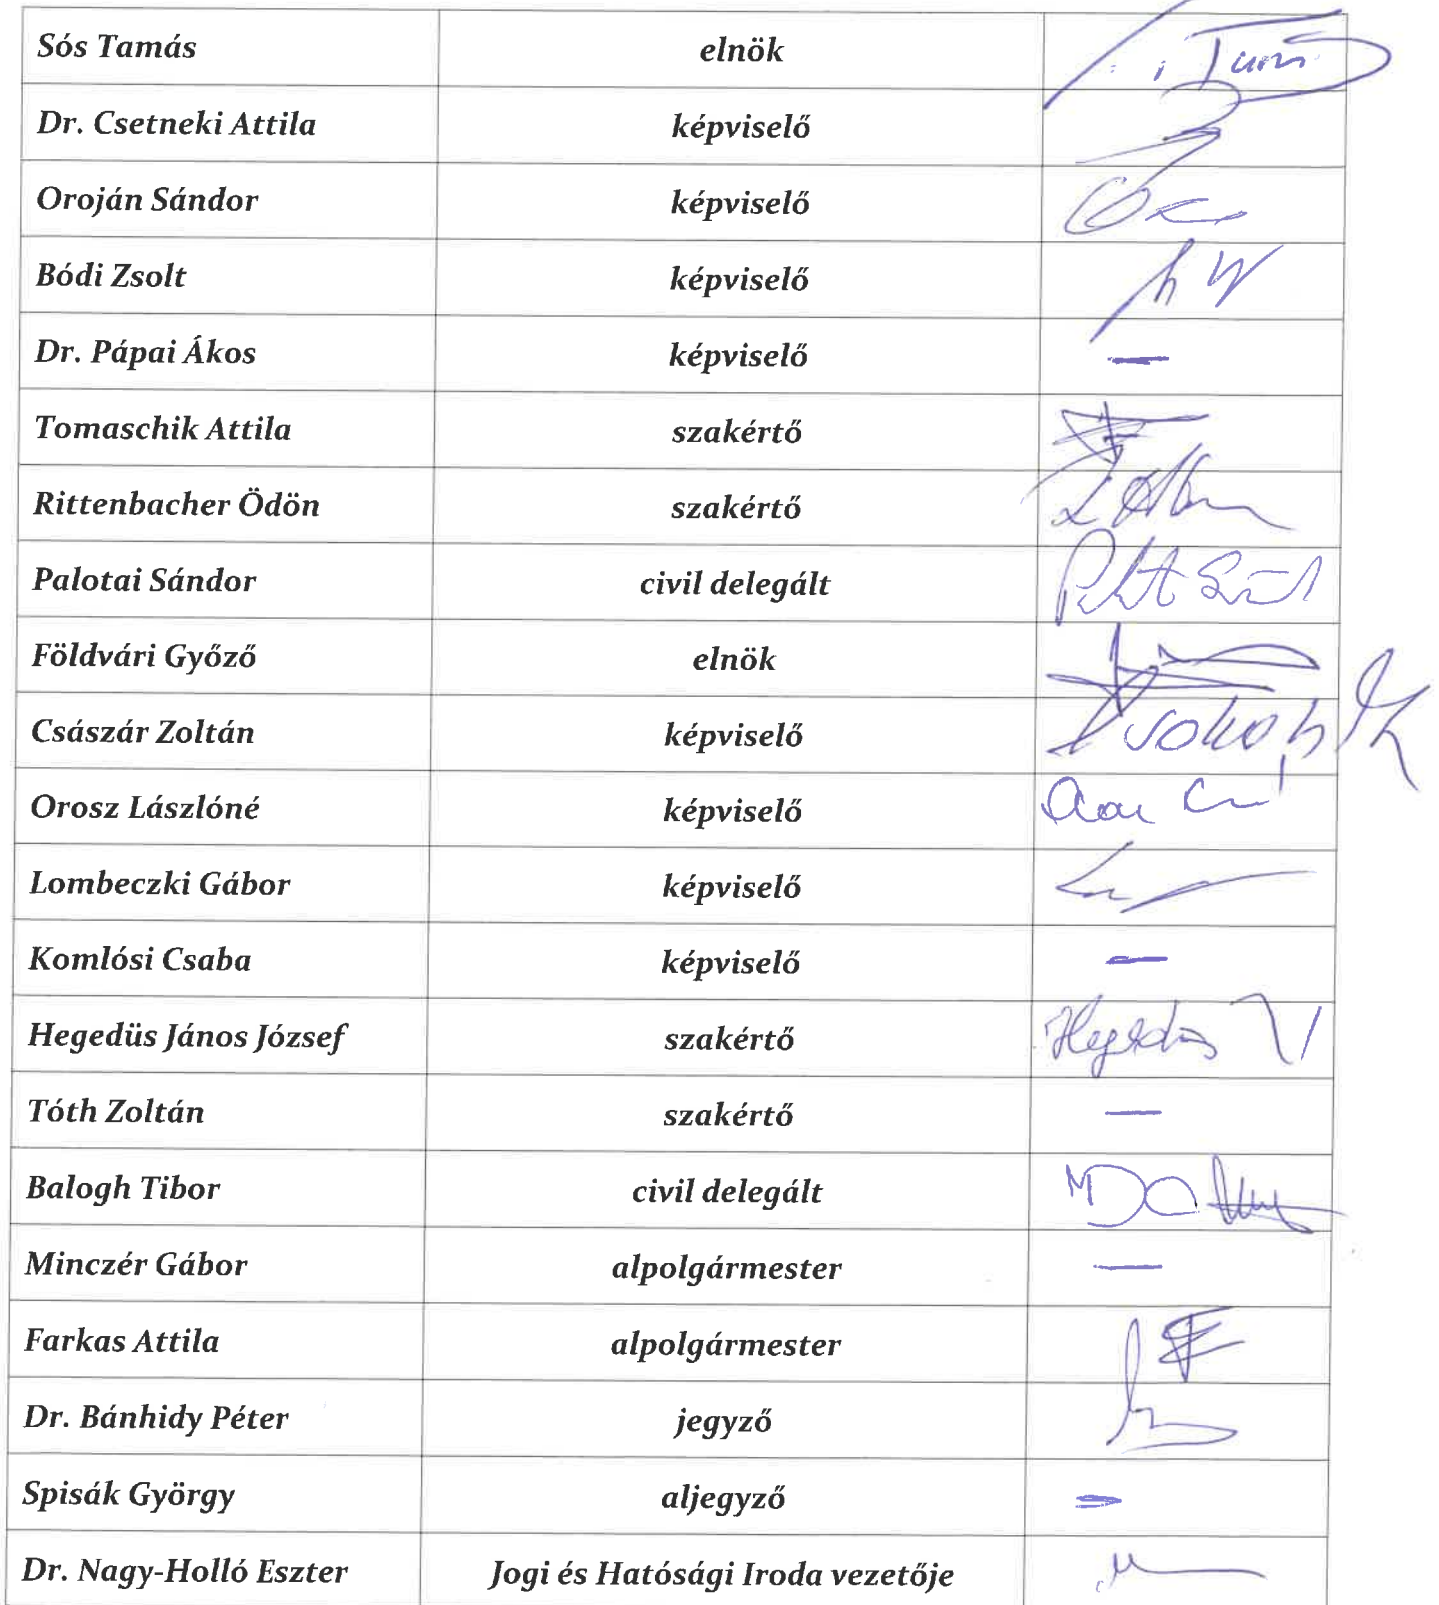 Sós Tamás elnök
Dr. Csetneki Attila képviselő
Oroján Sándor képviselő
Bódi Zsolt képviselő
Dr. Pápai Ákos képviselő —
Tomaschik Attila szakértő
Rittenbacher Ödön szakértő
Palotai Sándor civil delegált
Földvári Győző elnök
Császár Zoltán képviselő
Orosz Lászlóné képviselő
Lombeczki Gábor képviselő
Komlósi Csaba képviselő —
Hegedüs János József szakértő
Tóth Zoltán szakértő —
Balogh Tibor civil delegált
Minczér Gábor alpolgármester —
Farkas Attila alpolgármester
Dr. Bánhidy Péter jegyző
Spisák György aljegyző —
Dr. Nagy-Holló Eszter Jogi és Hatósági Iroda vezetője